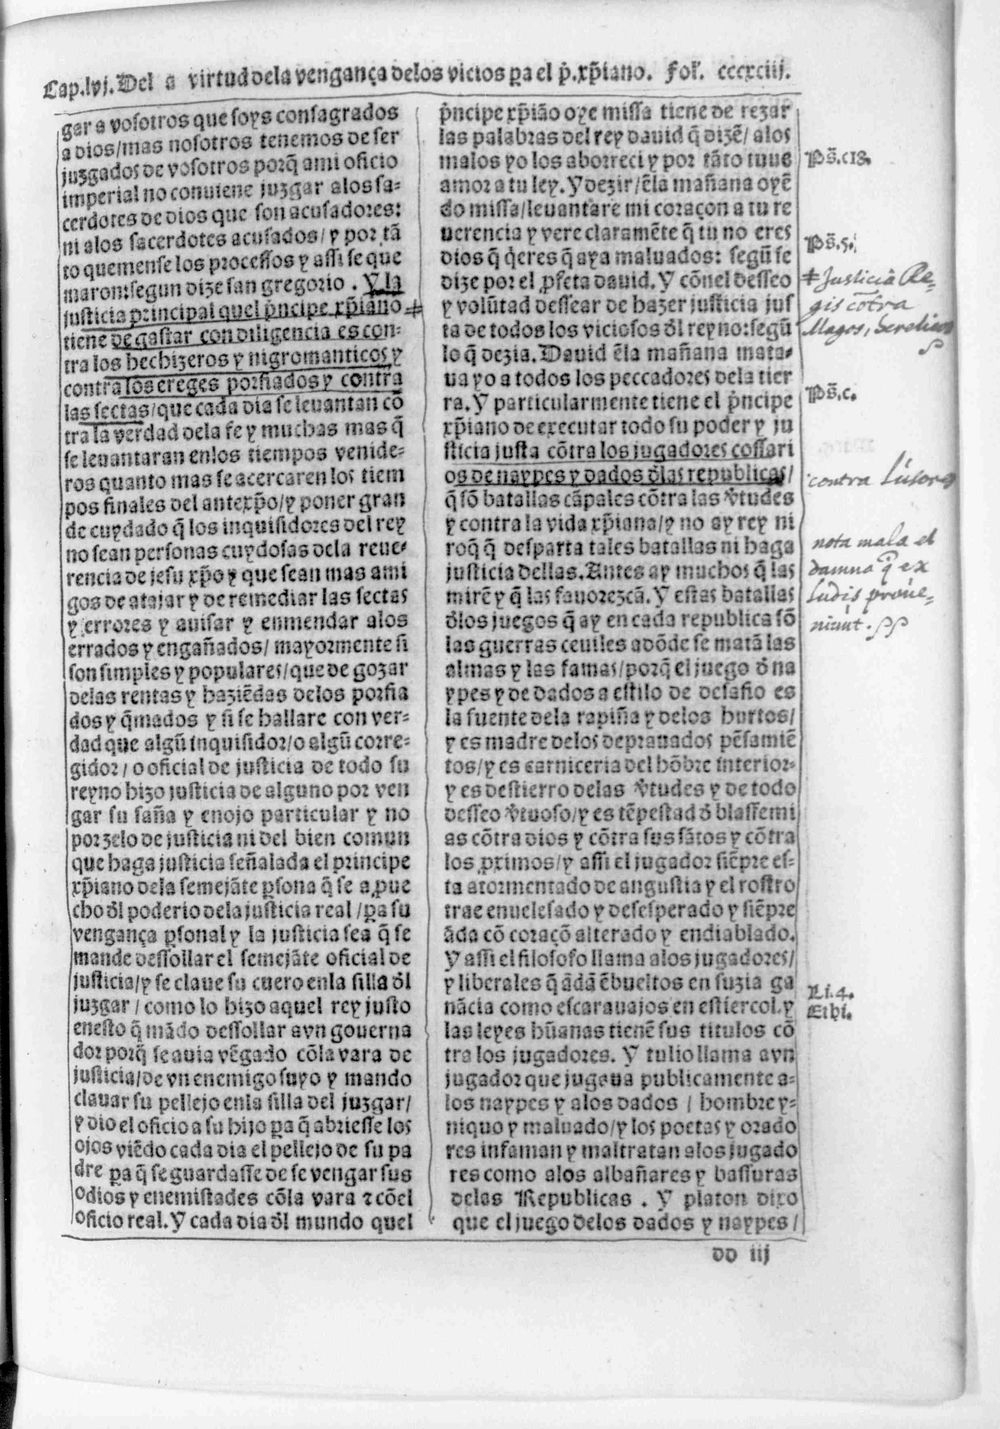 Cap.lvj. Del a virtud dela vengança delos vicios pa el p̃.xp̃iano. Fol. cccxciij.
gar a vosotros que soys consagrados
a dios/mas nosotros tenemos de ser
juzgados de vosotros porq̃ a mi oficio
imperial no conuiene juzgar alos sa-
cerdotes de dios que son acusadores:
ni alos sacerdotes acusados/y por tã
to quemense los processos y assi se que
maron:segun dize san gregorio . Y la
justicia principal quel p̃ncipe xp̃iano
tiene de gastar con diligencia es con-
tra los hechizeros y nigromanticos y
contra los ereges porfiados y contra
las sectas/que cada dia se leuantan cõ
tra la verdad dela fe y muchas mas q̃
se leuantaran enlos tiempos venide-
ros quanto mas se acercaren los tiem
pos finales del antexp̃o/y poner gran
de cuydado q̃ los inquisidores del rey
no sean personas cuydosas dela reue-
rencia de jesu xp̃o y que sean mas ami
gos de atajar y de remediar las sectas
y errores y auisar y enmendar alos
errados y engañados/ mayormente si
son simples y populares/que de gozar
delas rentas y haziẽdas delos porfia
dos y q̃mados y si se hallare con ver-
dad que algũ inquisidor/o algũ corre-
gidor/o oficial de justicia de todo su
reyno hizo justicia de alguno por ven
gar su saña y enojo particular y no
por zelo de justicia ni del bien comun
que haga justicia señalada el principe
xp̃iano dela semejãte p̱sona q̃ se a p̱ue
cho d̃l poderio dela justicia real /p̱a su
vengança p̱sonal y la justicia sea q̃ se
mande dessollar el semejãte oficial de
justicia/y se claue su cuero enla silla d̃l
juzgar/ como lo hizo aquel rey justo
enesto q̃ mãdo dessollar avn gouerna
dor porq̃ se auia vẽgado cõla vara de
justicia/de vn enemigo suyo y mando
clauar su pellejo enla silla del juzgar/
y dio el oficio a su hijo p̱a q̃ abriesse los
ojos viẽdo cada dia el pellejo de su pa
dre p̱a q̃ se guardasse de se vengar sus
odios y enemistades cõla vara ⁊ cõel
oficio real. Y cada dia d̃l mundo quel
p̃ncipe xp̃ião oye missa tiene de rezar
las palabras del rey dauid q̃ dizẽ/ alos
malos yo los aborreci y por tãto tuue
amor a tu ley. Y dezir/ẽla mañana oyẽ
do missa/leuantare mi coraçon a tu re
uerencia y vere claramẽte q̃ tu no eres
dios q̃ q̃eres q̃ aya maluados: segũ se
dize por el p̱feta dauid. Y cõnel desseo
y volũtad dessear de hazer justicia jus
ta de todos los viciosos d̃l reyno:segũ
lo q̃ dezia. Dauid ẽla mañana mata-
ua yo a todos los peccadores dela tier
ra. Y particularmente tiene el p̃ncipe
xp̃iano de executar todo su poder y ju
sticia justa cõtra los jugadores cossari
os de naypes y dados d̃las republicas/
q̃ sõ batallas cãpales cõtra las v̓tudes
y contra la vida xp̃iana/y no ay rey ni
roq̃ q̃ desparta tales batallas ni haga
justicia dellas. Antes ay muchos q̃ las
mirẽ y q̃ las fauorezcã. Y estas batallas
d̃los juegos q̃ ay en cada republica sõ
las guerras ceuiles adõde se matã las
almas y las famas/porq̃ el juego d̃ na
ypes y de dados a estilo de desafio es
la fuente dela rapiña y delos hurtos/
y es madre delos deprauados pẽsamiẽ
tos/y es carniceria del hõbre interior-
y es destierro delas v̓tudes y de todo
desseo v̓tuoso/y es tẽpestad d̃ blassemi
as cõtra dios y cõtra sus sãtos y cõtra
los p̱ximos/y assi el jugador siẽpre es-
ta atormentado de angustia y el rostro
trae enuelesado y desesperado y siẽpre
ãda cõ coraçõ alterado y endiablado.
Y assi el filosofo llama alos jugadores/
y liberales q̃ ãdã ẽbueltos en suzia ga
nãcia como escarauajos en estiercol.y
las leyes hũanas tienẽ sus titulos cõ
tra los jugadores. Y tulio llama avn
jugador que jugaua publicamente a-
los naypes y alos dados / hombre y-
niquo y maluado/y los poetas y orado
res infaman y maltratan alos jugado
res como alos albañares y bassuras
delas Republicas . Y platon dixo
que el juego delos dados y naypes/
dd iij
Ps̃.c18.
Ps̃.5.
‡ Justicia Re-
gis cõtra
Magos, hereticos
Ps̃.c.
contra Lusores
nota mala et
damna q̃ ex
Ludis proue-
niunt.
Li.4.
Ethi.